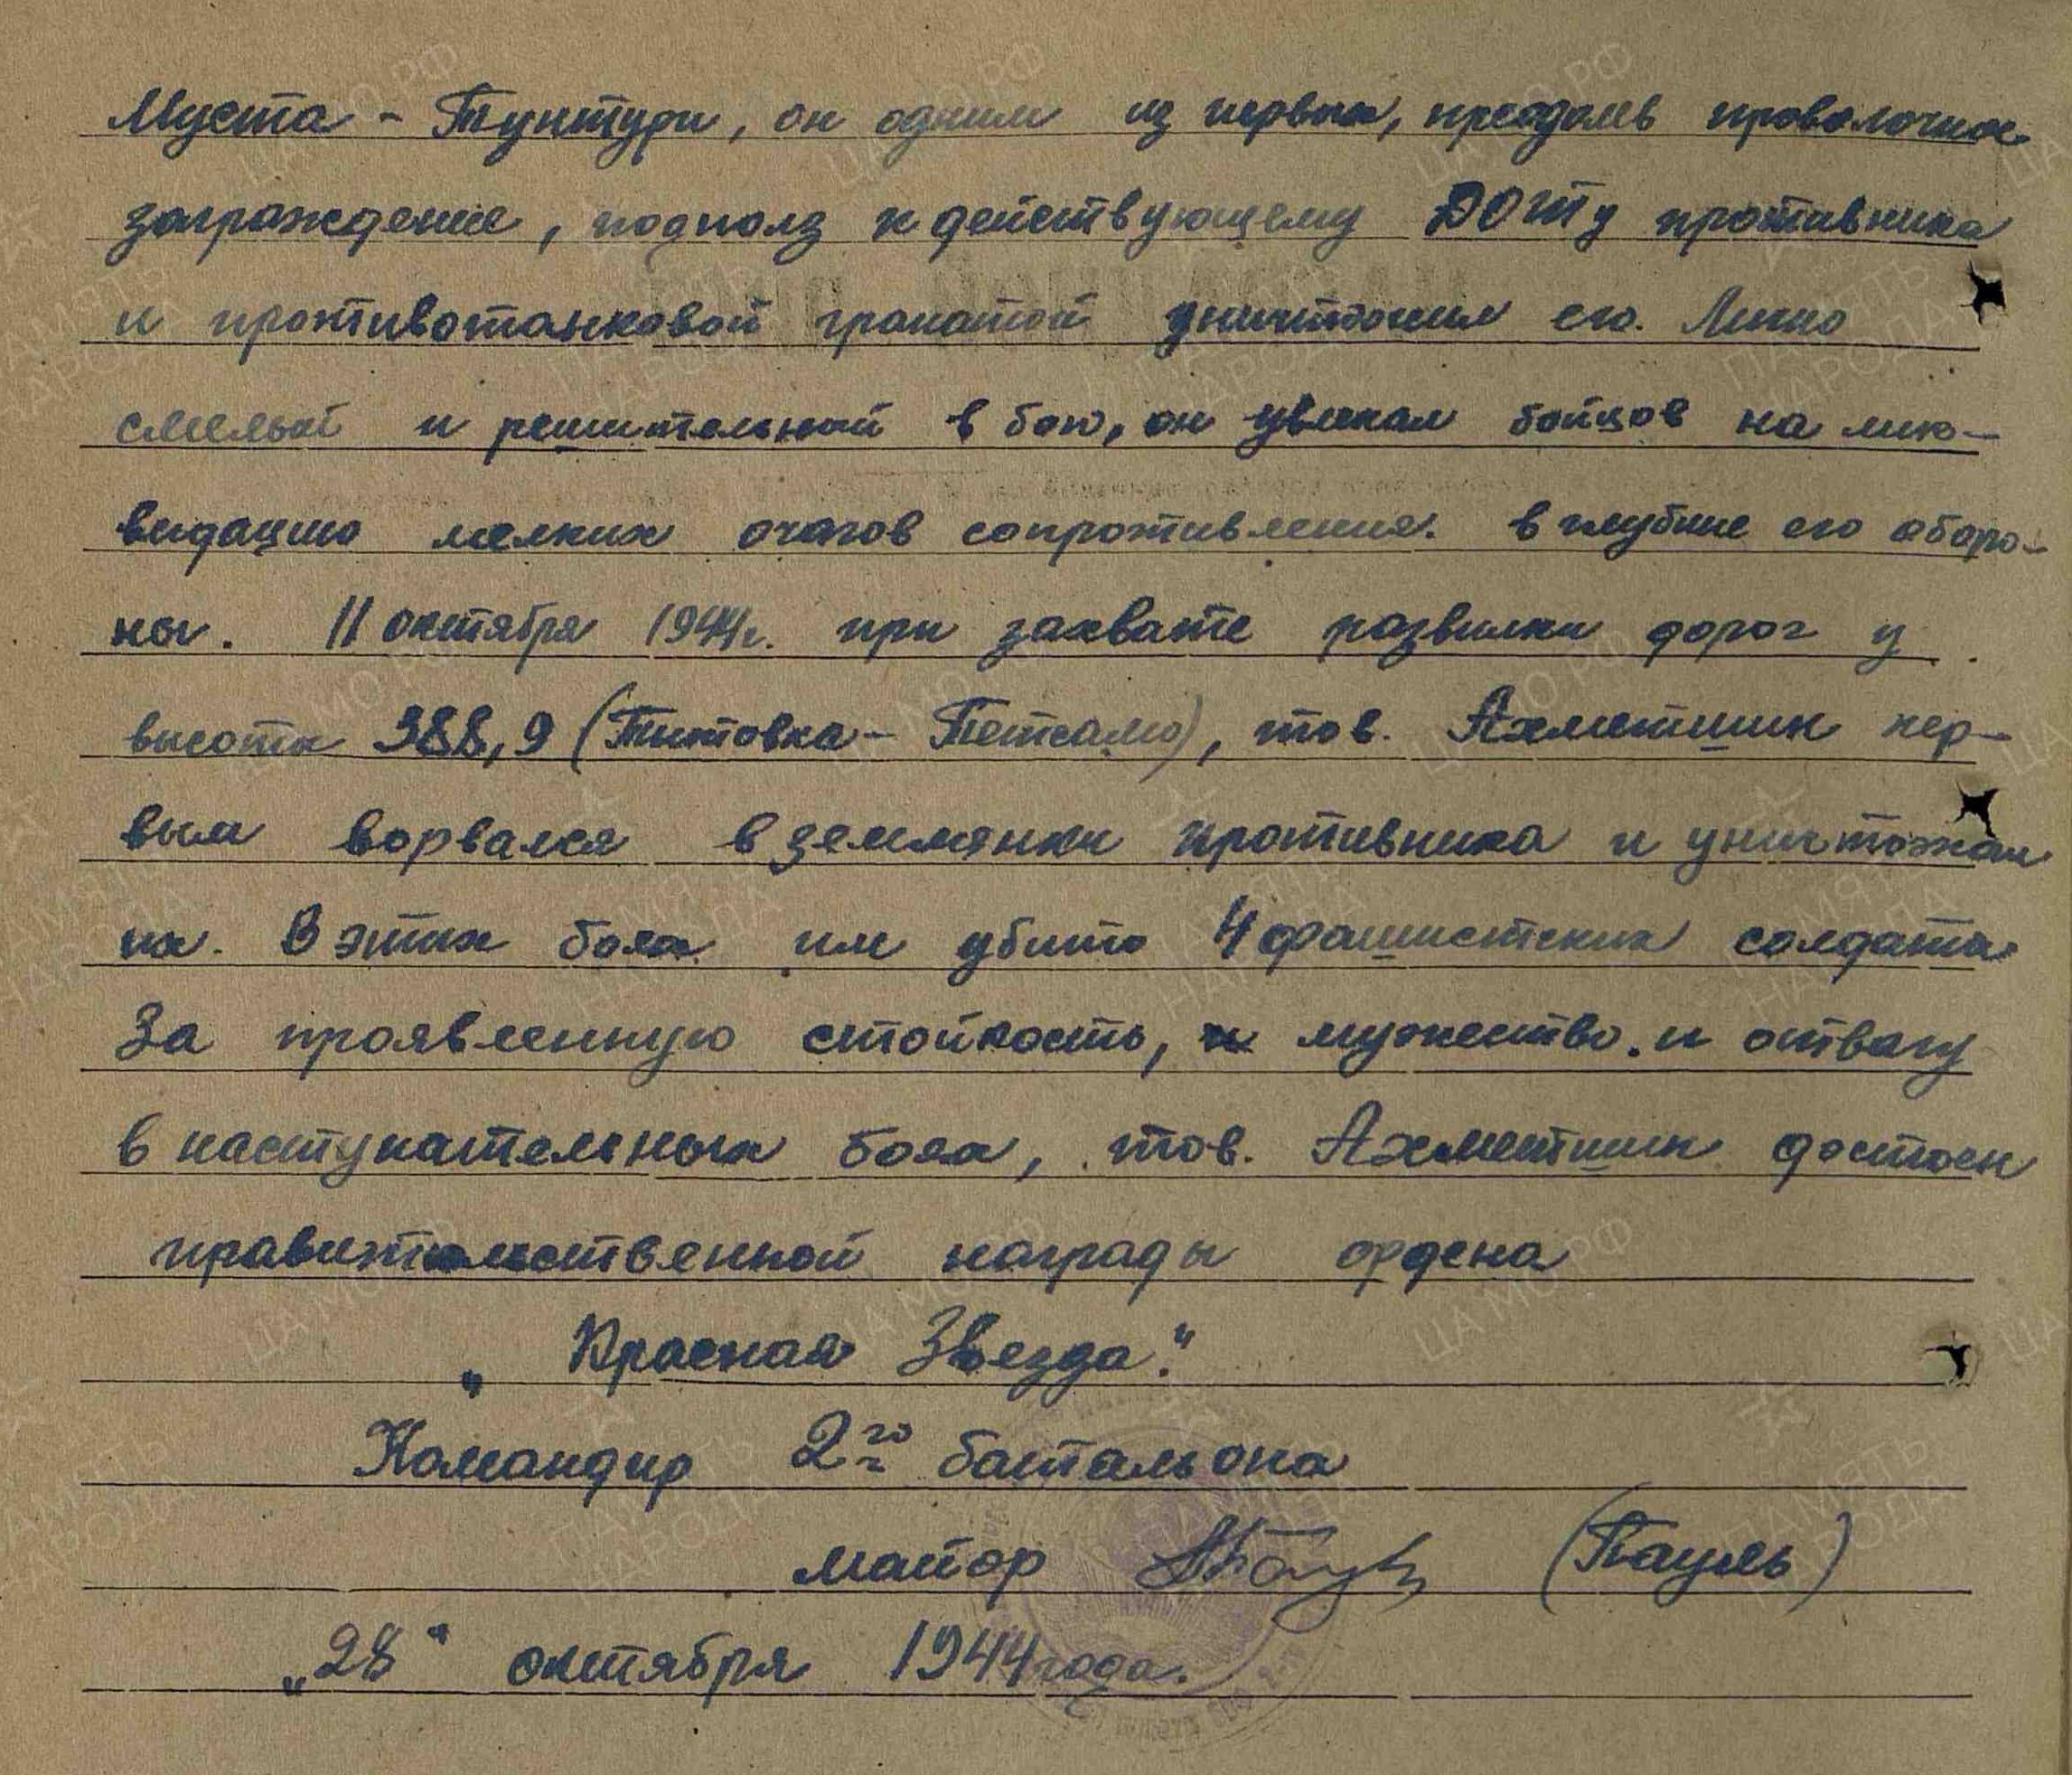 Муста-Тунтури, он одним из первых, преодолев проволочное
заграждение, подполз к действующему ДОТу противника
и противотанковой гранатой уничтожил его. Лично
смелый и решительный в бою, он увлекал бойцов на лик-
видацию мелких очагов сопротивления. в глубине его оборо-
ны. 11 октября 1944г. при захвате развилки дорог у
высоты 388,9 (Титовка - Петсамо), тов. Ахметшин пер-
вым ворвался в землянки противника и уничтожал
их. В этих боях им убито 4 фашистских солдата.
За проявленную стойкость, мужество и отвагу
в наступательных боях, тов. Ахметшин достоин
правительственной награды ордена
„Красная Звезда".
Командир 2го батальона
майор (Пауль)
„28" октября 1944 года.